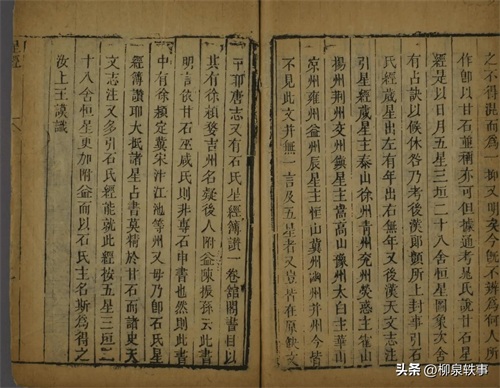 之不得混而為一抑又明矣今旣不辨為何人所
作卽以甘石並稱亦可但據通考晁氏說甘石星
經是以日月五星三垣二十八舍恒星圖象次舍
有占訣以候休咎乃考後漢郎顗所上封事引石
氏經歲星出左有年出右無年又後漢天文志注
引星經歲星主泰山徐州青州兗州熒惑主霍山
揚州荆州交州鎮星主嵩高山豫州太白主華山
凉州雍州益州辰星主恒山冀州幽州并州今皆
不見此文并無一言及五星者又豈皆在原缺文
中耶唐志又有石氏星經簿讚一卷館閣書目以
其有徐穎婺吉州名疑後人附益陳振孫云此書
明言依甘石巫咸氏則非專石申書也然則此書
中有徐穎定冀宋汴江池等州又毋乃卽石氏星
經簿讚耶大抵諸星占書莫精於甘石而諸史天
文志注又多引石氏經能就此經按五星三垣二
十八舍恒星更加附益而以石氏主名斯為得之
汝上王謨識
星經
头条 @柳泉轶事